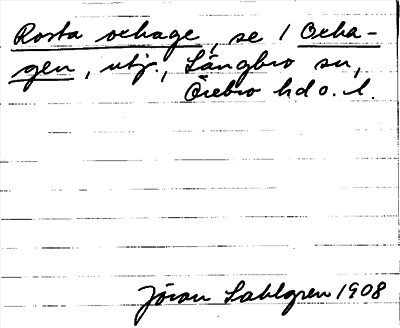 Rosta oxhage, se 1 Oxha-
gen, utj., Längbro sn,
Örebro hd o. l.
Jöran Sahlgren 1908